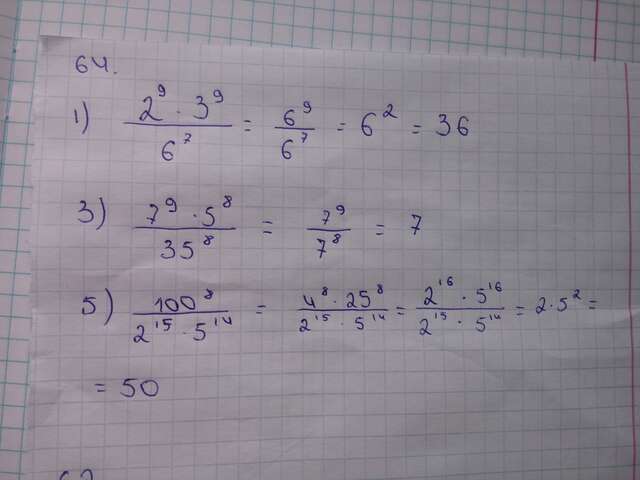 64.
1) 2⁹ · 3⁹ / 6⁷ = 6⁹ / 6⁷ = 6² = 36
3) 7⁹ · 5⁸ / 35⁸ = 7⁹ / 7⁸ = 7
5) 100⁸ / 2¹⁵ · 5¹⁴ = 4⁸ · 25⁸ / 2¹⁵ · 5¹⁴ = 2¹⁶ · 5¹⁶ / 2¹⁵ · 5¹⁴ = 2 · 5² =
= 50